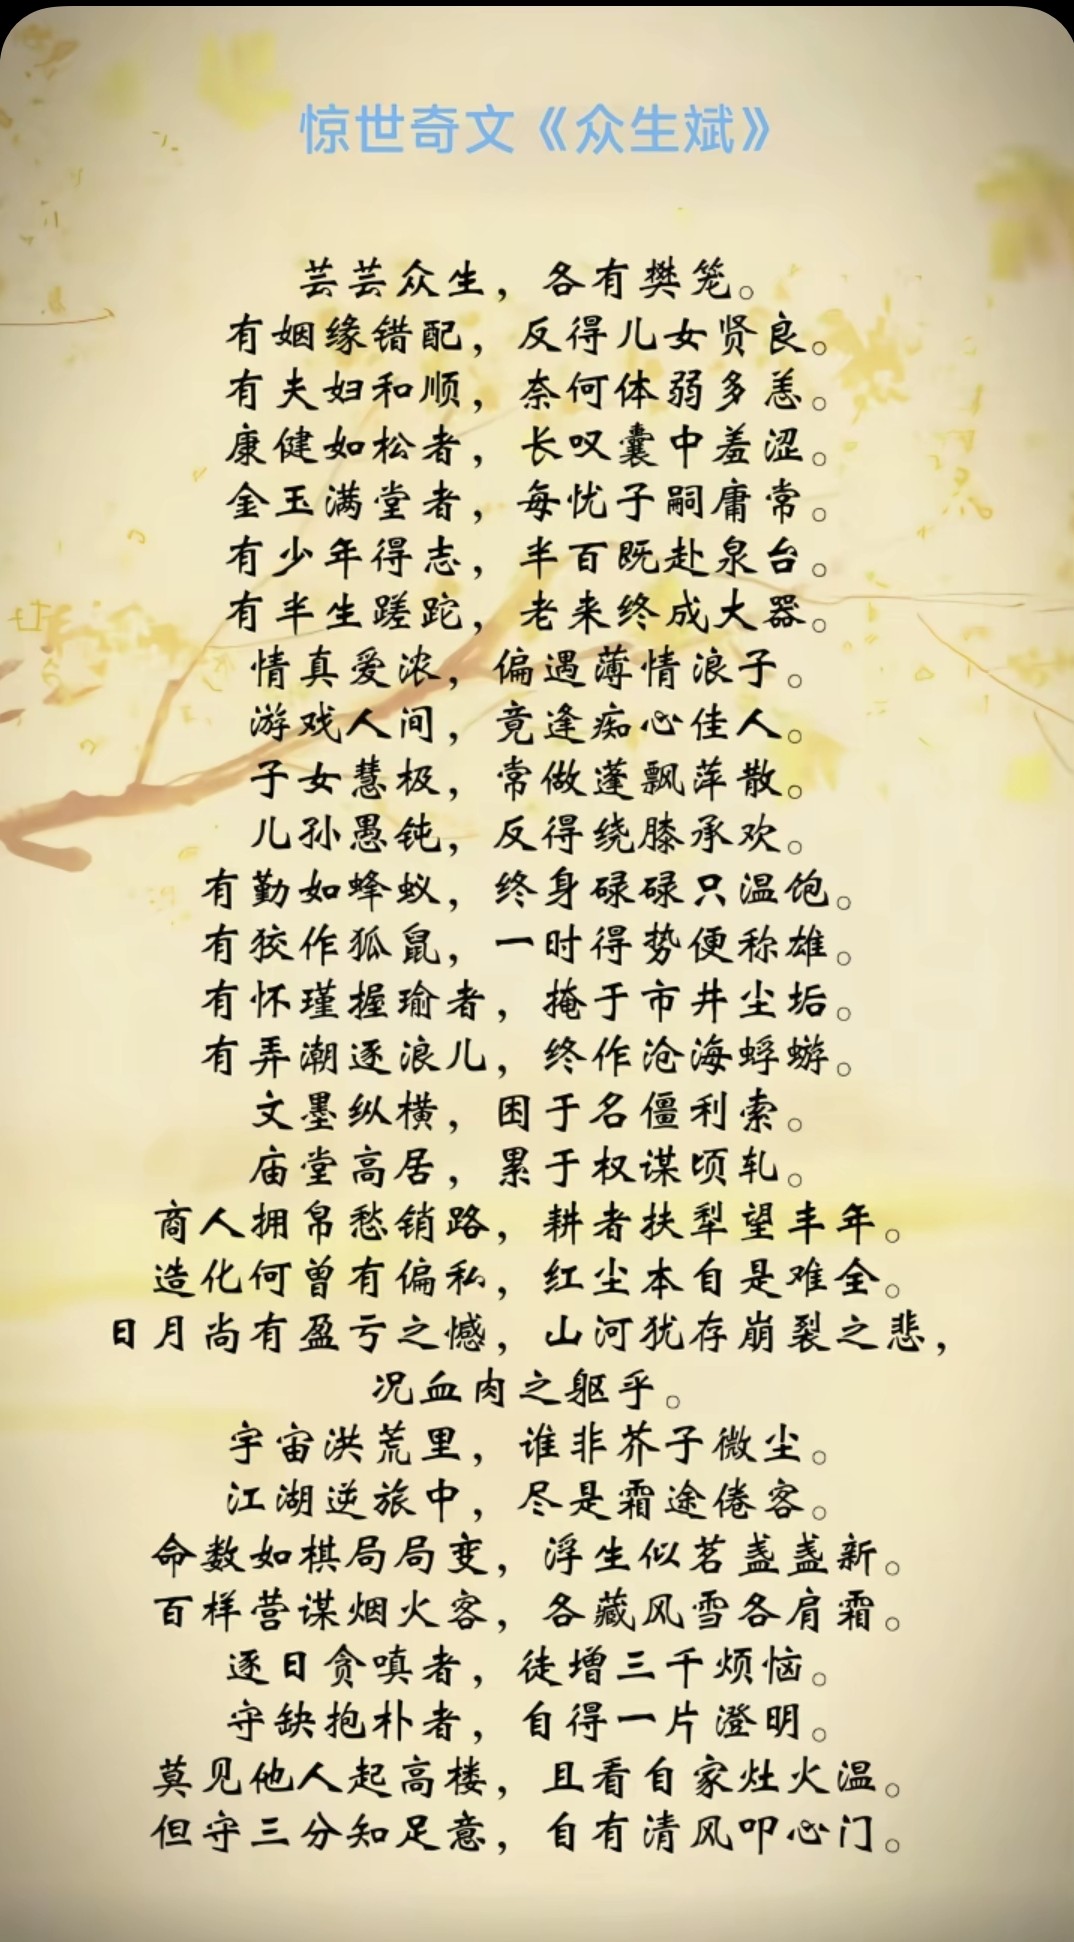 惊世奇文《众生斌》
芸芸众生，各有樊笼。
有姻缘错配，反得儿女贤良。
有夫妇和顺，奈何体弱多恙。
康健如松者，长叹囊中羞涩。
金玉满堂者，每忧子嗣庸常。
有少年得志，半百既赴泉台。
有半生蹉跎，老来终成大器。
情真爱浓，偏遇薄情浪子。
游戏人间，竟逢痴心佳人。
子女慧极，常做蓬飘萍散。
儿孙愚钝，反得绕膝承欢。
有勤如蜂蚁，终身碌碌只温饱。
有狡作狐鼠，一时得势便称雄。
有怀瑾握瑜者，掩于市井尘垢。
有弄潮逐浪儿，终作沧海蜉蝣。
文墨纵横，困于名僵利索。
庙堂高居，累于权谋顷轧。
商人拥帛愁销路，耕者扶犁望丰年。
造化何曾有偏私，红尘本自是难全。
日月尚有盈亏之憾，山河犹存崩裂之悲，
况血肉之躯乎。
宇宙洪荒里，谁非芥子微尘。
江湖逆旅中，尽是霜途倦客。
命数如棋局局变，浮生似茗盏盏新。
百样营谋烟火客，各藏风雪各肩霜。
逐日贪嗔者，徒增三千烦恼。
守缺抱朴者，自得一片澄明。
莫见他人起高楼，且看自家灶火温。
但守三分知足意，自有清风叩心门。